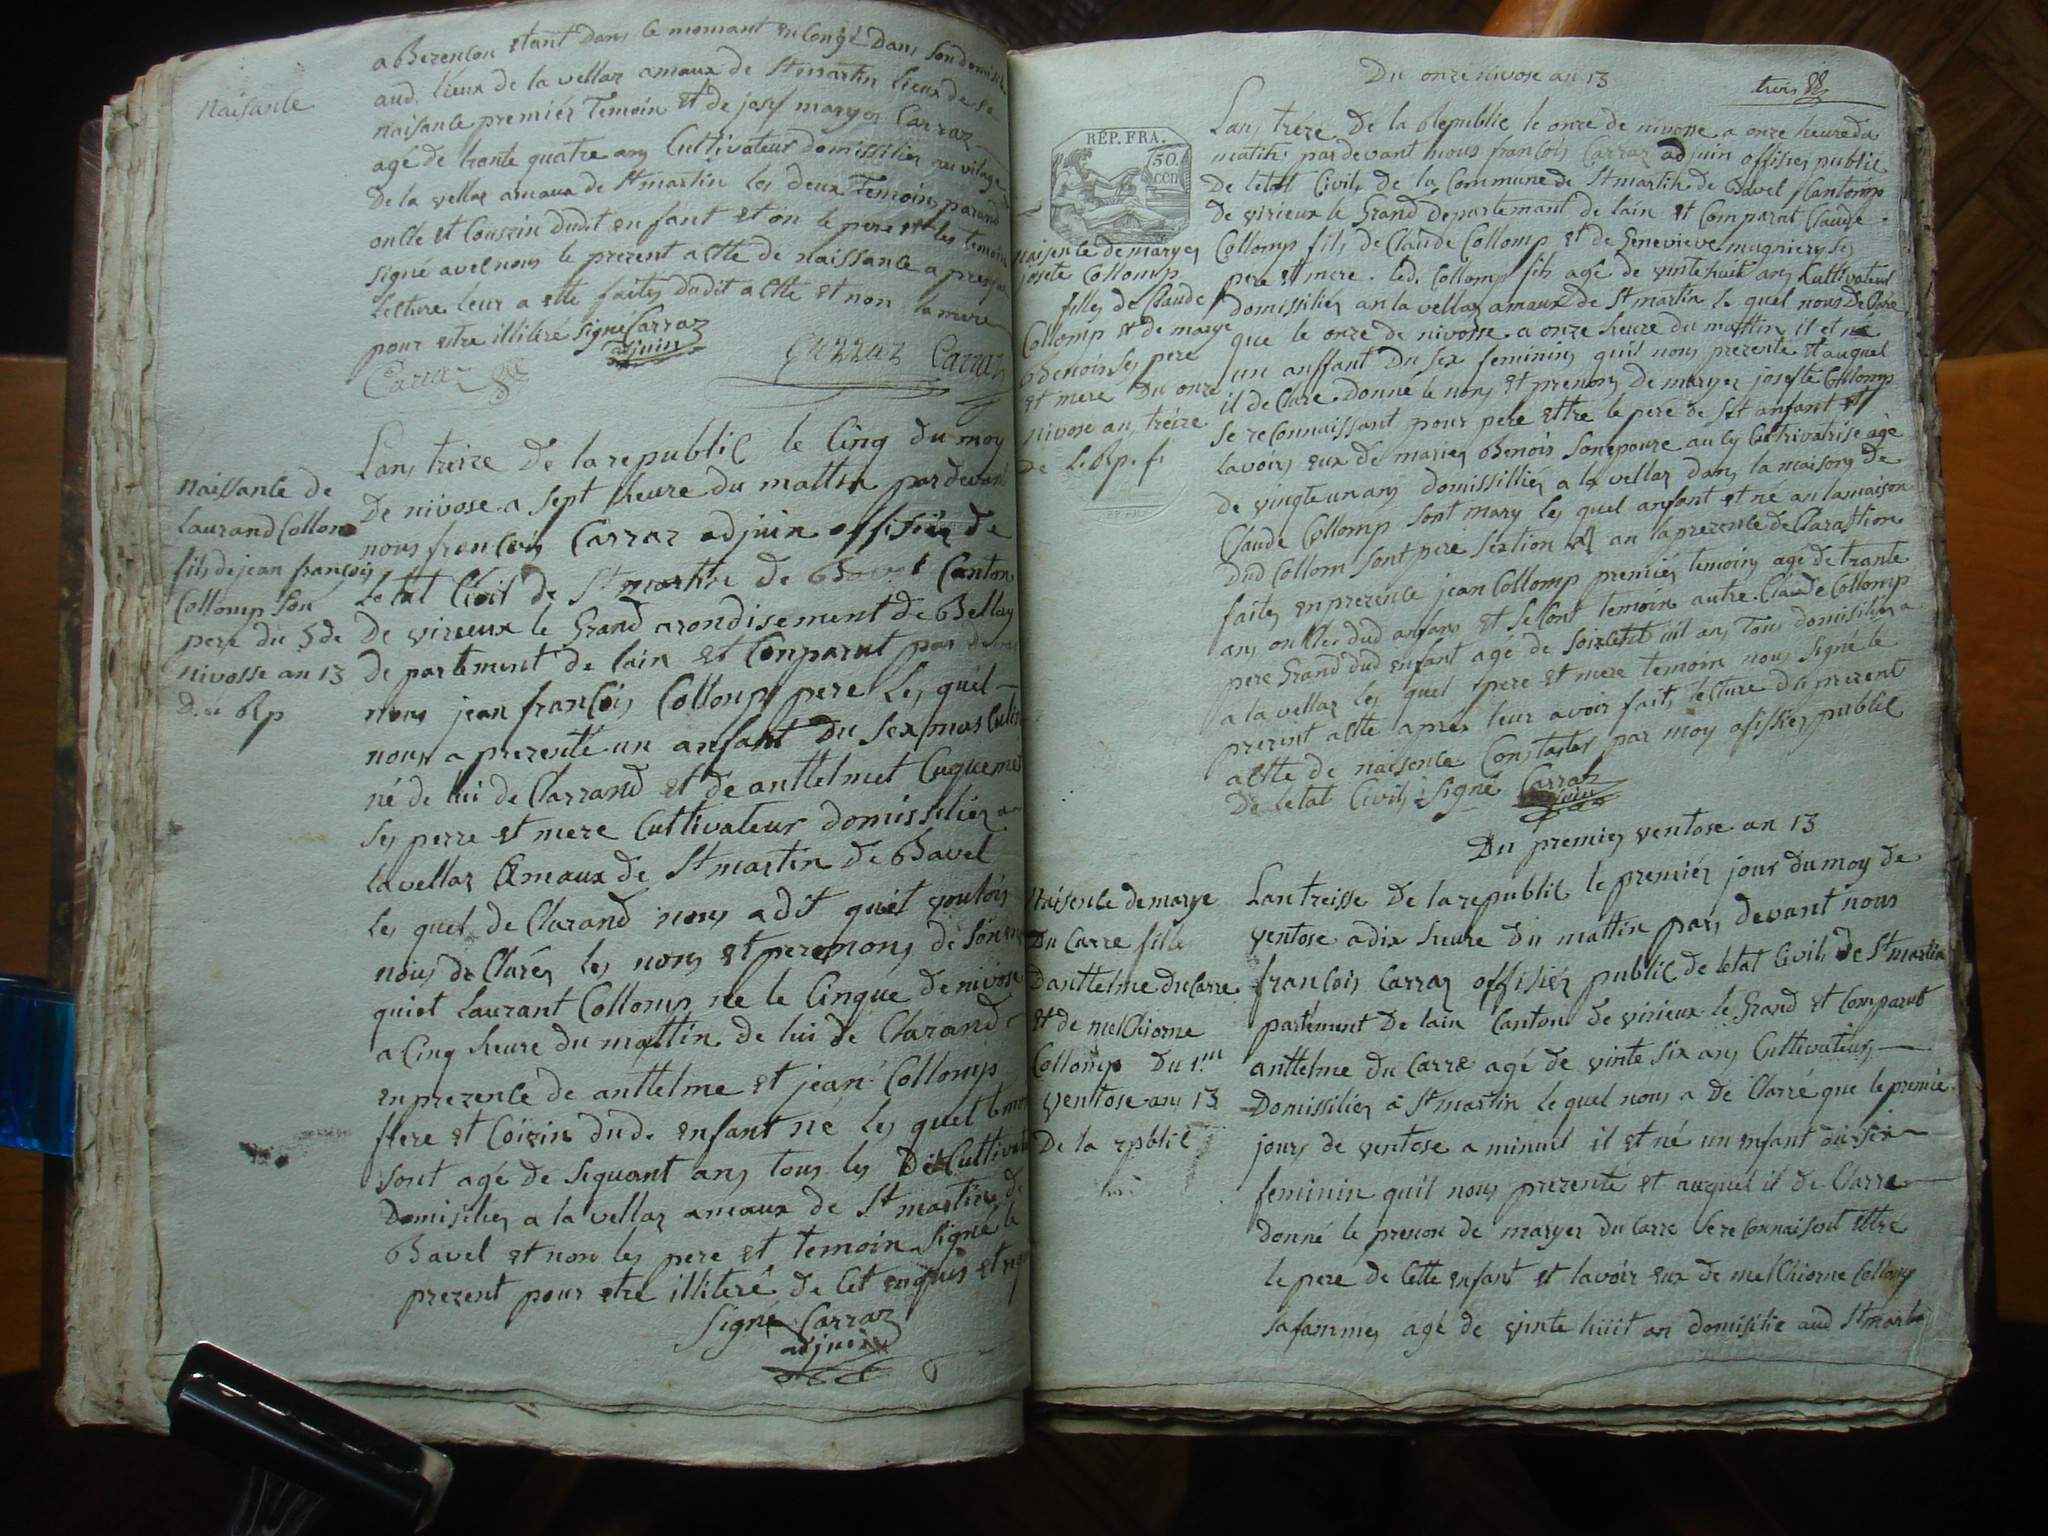 naisance
a Berencon etant dans le momant en congé dans son domisile
aud. lieux de la vellaz amaux de St martin lieux de sa
naisance premiér temoin et de josef maryer Carraz
agé de trante quatre any Cultivateur domissilier au vilage
de la vellaz amaux de St martin les deux temoins parand
oncle et Couszin dudit enfant et on le pere et les temoin
signé avec nous le prezent actte de naissance a pres
lecture leur a ette faitey dudit actte et non la mere
pour estre illiteré signé Carraz
adjuin
Carraz Carraz Carraz
naissance de
Laurand Collomp
fils de jean françois
Collomp son
pere du 5 de
nivosse an 13
D. la Rp
Lans treize de la republic le Cinq du moy
de nivose a sept heure du mattin pardevant
nous francois Carraz adjuin offisier de
letat Civil de St martin de Bavel Canton
de virieux le Grand arondisement de Bellay
de partement de lain et Conparut par devant
nous jean françois Collomp pere les quel
nous a prezenté un anfant du sex masculin
né de lui de Clarrand et de anttelmet Cuquemet
ses perre et mere Cultivateur domissilier a
la vellaz ameaux de St martin de Bavel
les quel de Clarand nous a dit quil voulois
nous de Clarer les nons et perenons de son en
quiet Laurant Collomp ne le Cinque de nivose
a Cinq heure du mattin de lui de Clarand
en prezence de anttelme et jean Collomp
frere et Coizin dud. enfant né les quel temoin
sont agé de siquant any tous les deux Cultivateur
Domisilier a la vellaz ameaux de St martin de
Bavel et non les pere et temoin signé le
prezent pour etre illiteré de Cet enquis et
signé Carraz
adjuin
Du onze nivose an 13
trois
RÉP. FRA.
50.
cen
naisence de maryer
josete Collomp
filles de Claude
Collomp et de marye
Benois ses pere
et mere Du onze
nivose an treize
de L. Rp. f.
Lans treize de la Republic le onze de nivosse a onze heure du
matin pardevant nous françois Carraz adjuin offisier public
de letat Civil de la Commune de St martin de Bavel Canton
de virieux le Grand departemant de lain et Comparat Claude
Collomp fils de Claude Collomp et de Genevieve mugnier ses
pere et mere. led. Collomp fils agé de vintehuit any Cultivateur
domissilier an la vellaz amaux de St martin le quel nous de Clare
que le onze de nivosse a onze heure du mattin il et né
un anffant du sex feminin quil nous prezente et auquel
il de Clare donne le nons et prenons de maryer josefte Collomp
se reconnaissant pour pere ettre le pere de set anfant et
lavoirs eux de marier Benois son epouze aucy Cultivatrise agé
de vingteun any domissillier a la vellaz dans la maison de
Claude Collomp sont mary les quel anfant et né an la maison
dud Collom sont pere section an la prezence de Claration
faites en prezence jean Collomp premier temoins agé de trante
any onkle dud anfans et second temoin autre Claude Collomp
pere Grand dud enfant agé de soixcete uit any tous domisilier a
a la vellaz les quel pere et mere temoin nous signé le
prezent actte apres leur avoir fait lecture du prezent
actte de naisence Constater par moy ofisier public
De letat Civil signé Carraz
adjuin
Du premier ventose an 13
Naisence de marye
Du Carre fille
Danttelme du Carre
et de melChiorne
Collomp Du 1.er
ventose ans 13
De la rpblic
Lan treisse de la republic le premier jour du moy de
ventose a dix heure du mattin pars devant nous
françois Carraz offisier public de letat Civil de St martin
partement de lain Canton de virieux le Grand et Comparut
anttelme du Carre agé de vinte six any Cultivateur
Domissilier a St martin le quel nous a de Clarré que le premie
jours de ventose a minuit il et né un enfant du sex
feminin quil nous prezente et auquel il de Clarre
donné le prenon de maryer du Carre se reconnaisent ettre
le pere de Cette enfant et lavoir eux de melChiorne Collomp
sa fammes agé de vinte huit an domisilie aud St martin